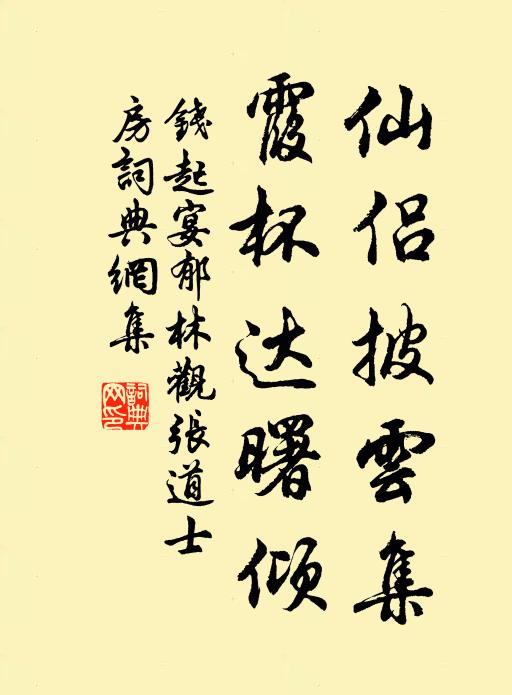 仙侣披雲集
霞杯达曙倾
錢起宴郁林觀張道士
房詞典網集
詞典網印